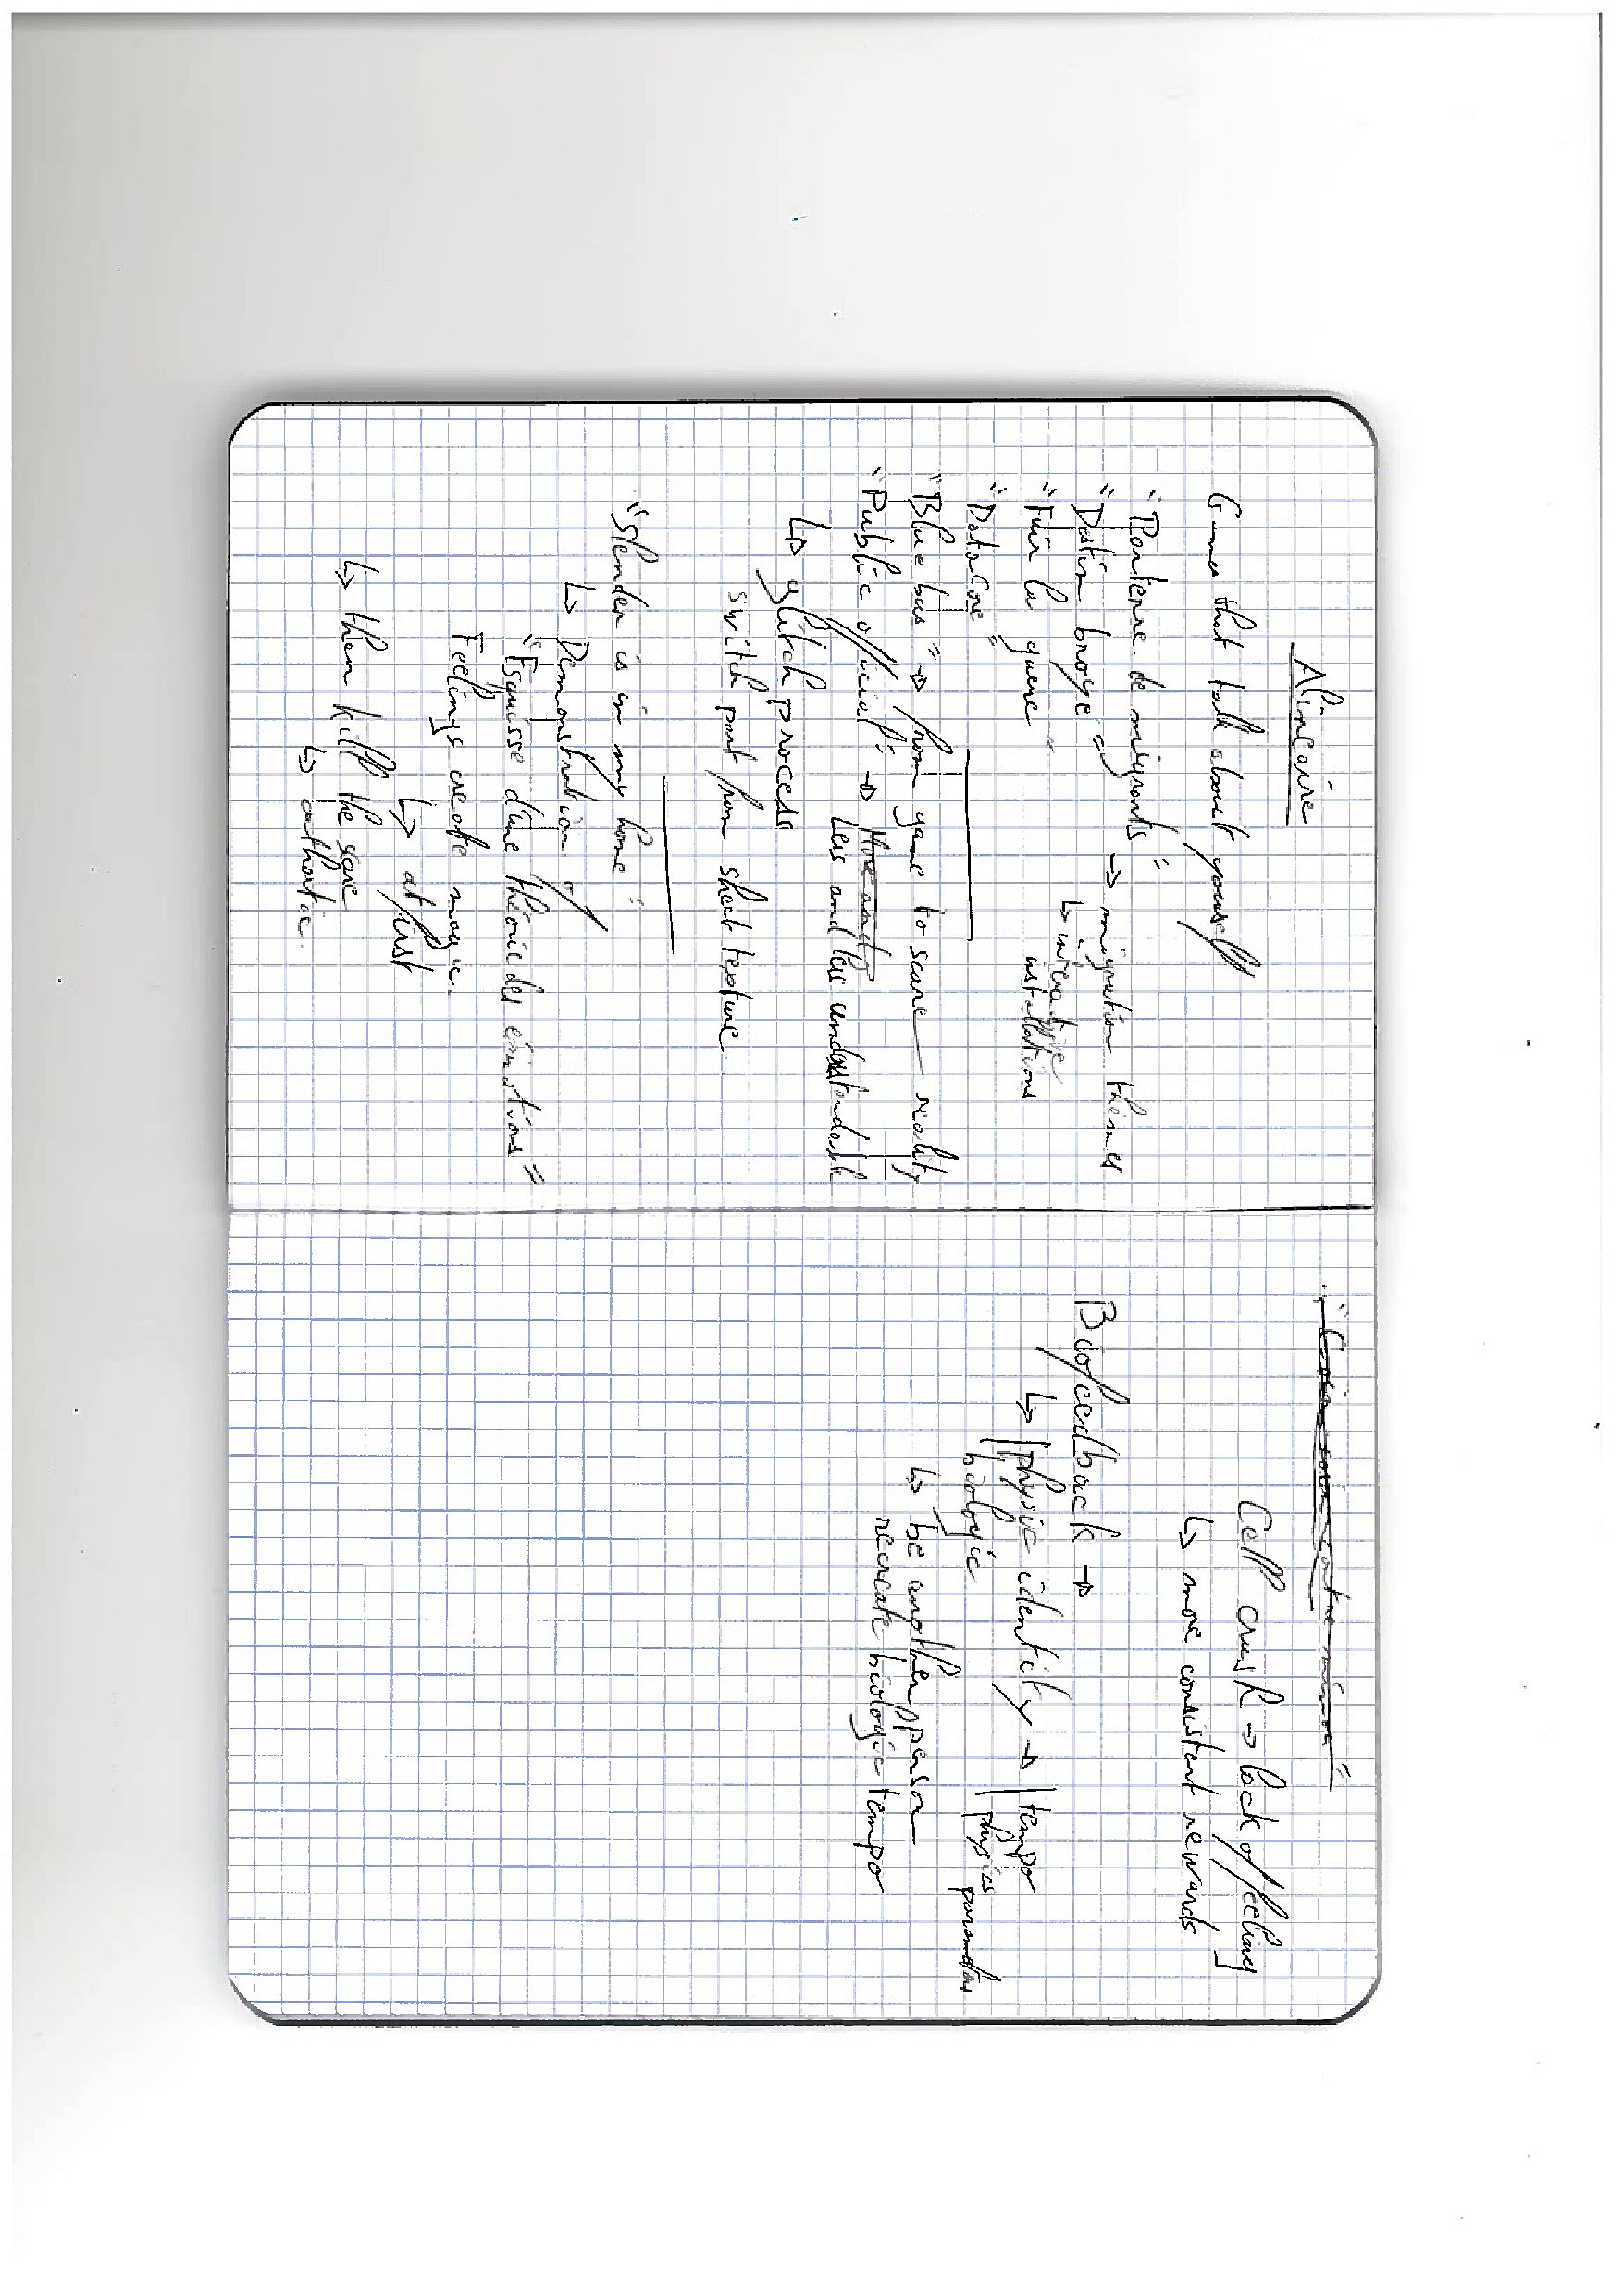 Games that talk about yourself
" de migrants " → migration thèmes
↳ interactive
installations
"
"Fuir la guerre"
"DataCore"
"Blue box" → from game to scare reality
"Public official" → More and
Less and less understandable
↳ glitch process
switch part from sheet texture
"Slender is in my home"
↳ Demonstration of
"Esquisse d'une théorie des émotions"
Feelings create magic.
↳ at first
↳ then kill the scare
↳
Cell crush → lack of feeling
↳ more consistent rewards
→
↳ physic identity → tempo
biologic physics
↳ be another person
recreate biologic tempo